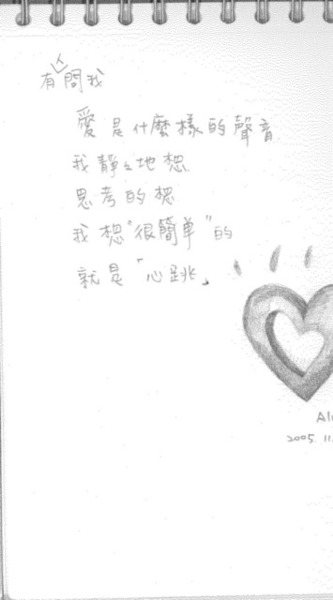 有人問我
愛是什麼樣的聲音
我靜々地想
思考的想
我想"很簡單"的
就是「心跳」
2005.11.